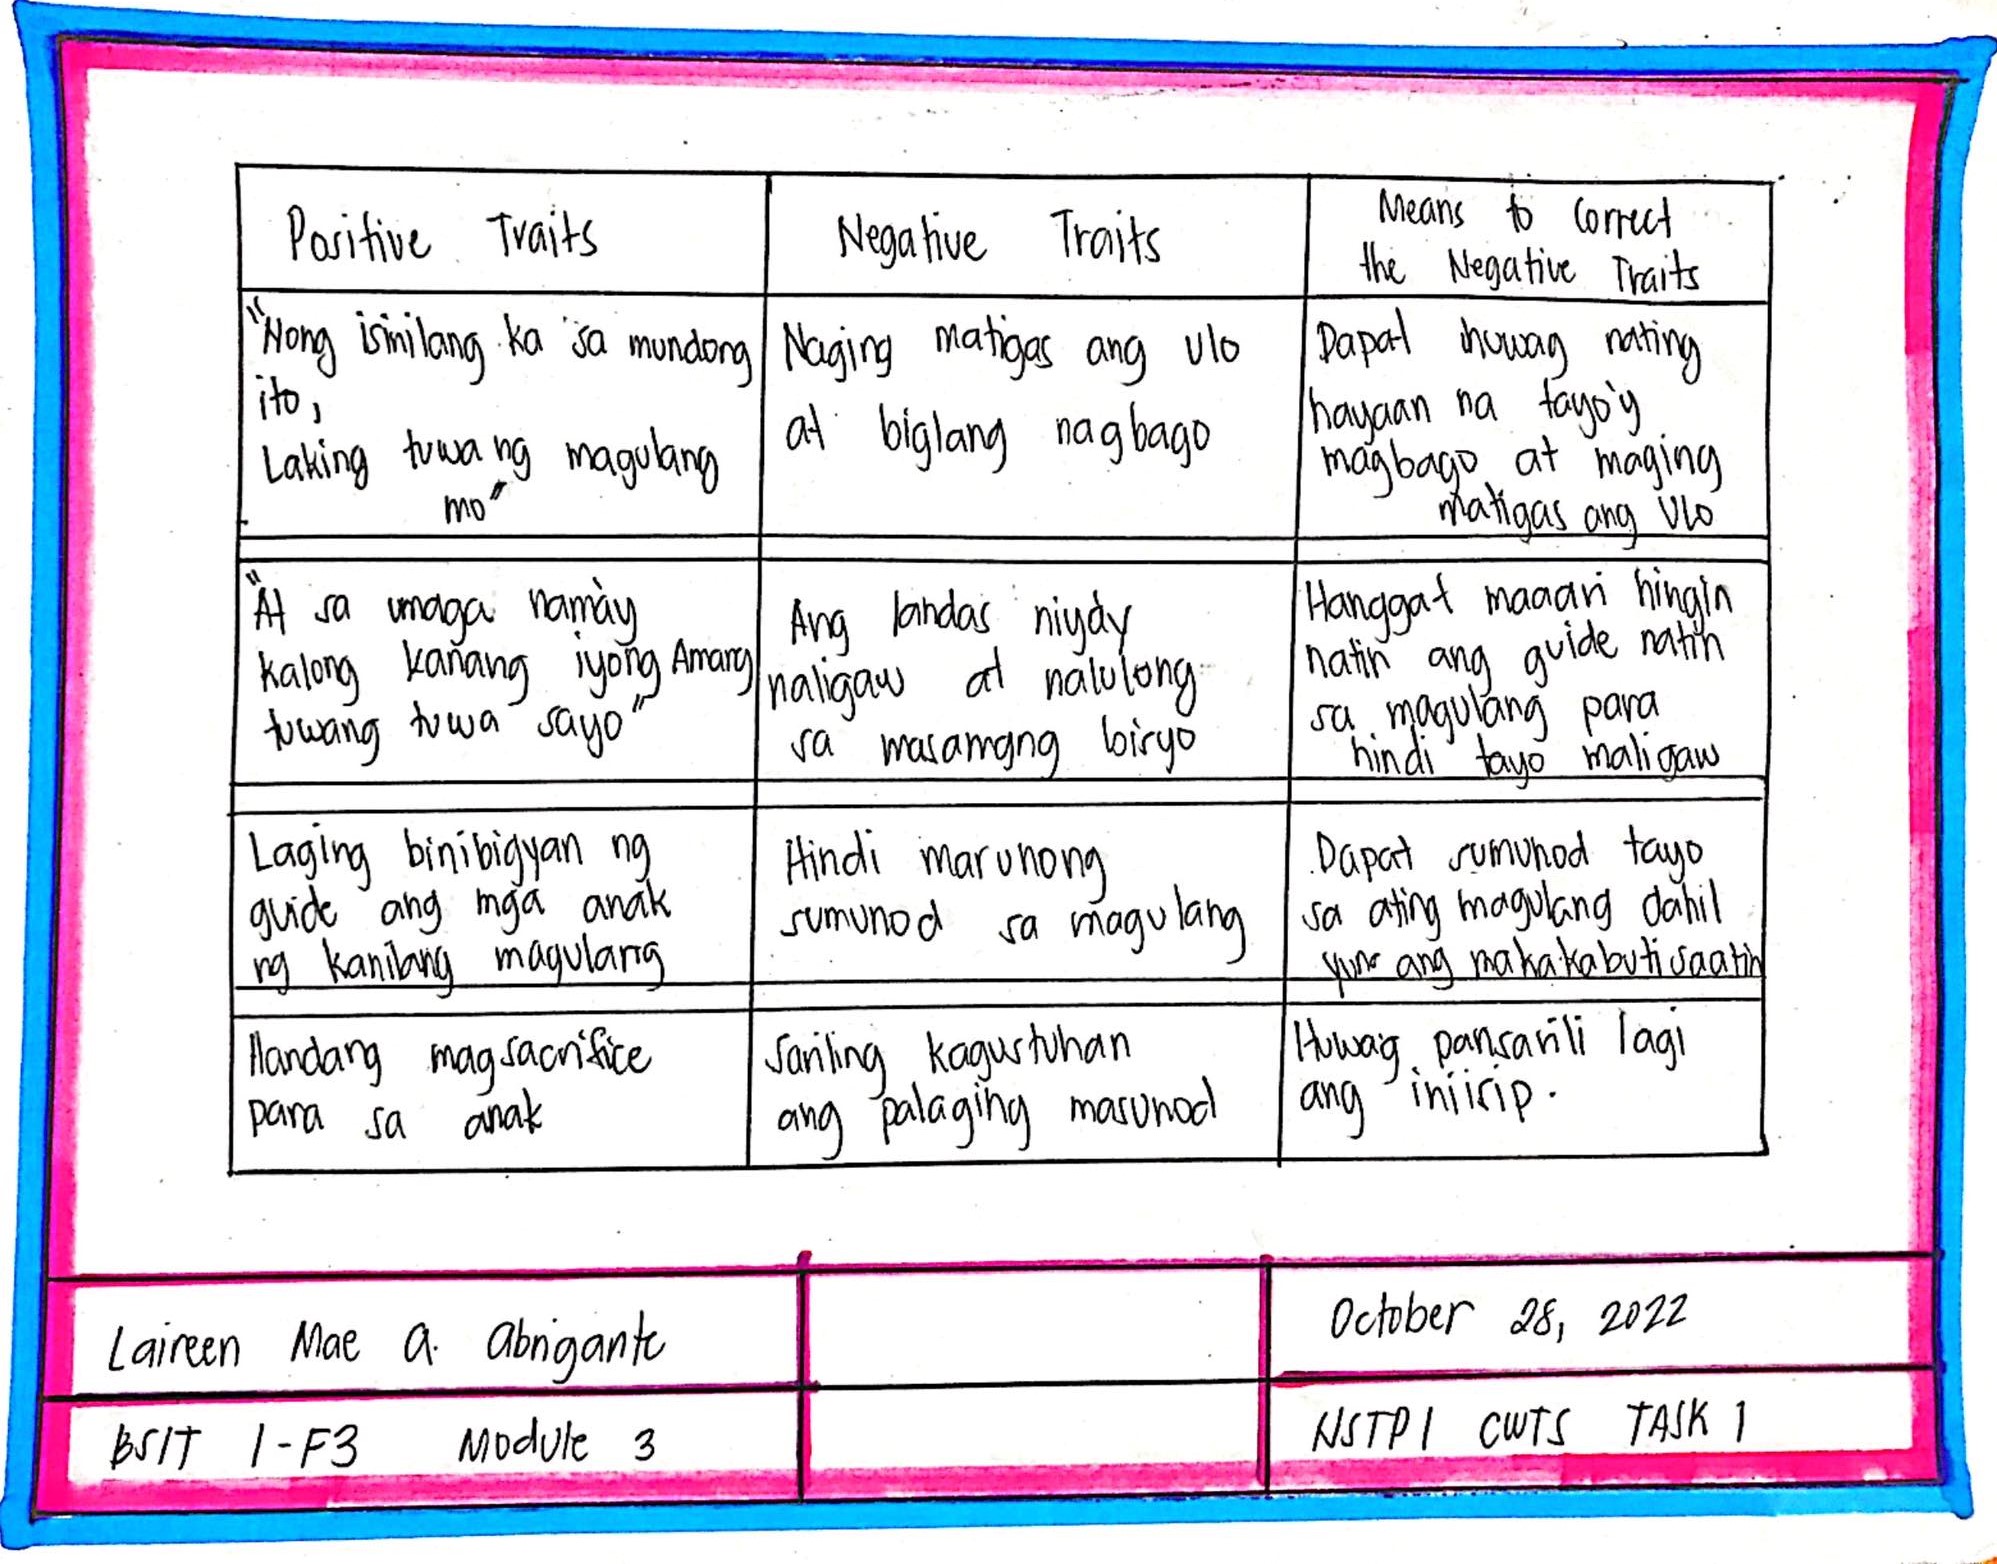 Positive Traits
Negative Traits
Means to Correct
the Negative Traits
"Nong isinilang ka sa mundong
ito,
Laking tuwa ng magulang
mo"
Naging matigas ang ulo
at biglang nagbago
Dapat huwag nating
hayaan na tayo'y
magbago at maging
matigas ang ulo
"At sa umaga nama'y
kalong kanang iyong Amang
tuwang tuwa sayo"
Ang landas niya'y
naligaw at nalulong
sa masamang bisyo
Hanggat maaari hingin
natin ang guide natin
sa magulang para
hindi tayo maligaw
Laging binibigyan ng
guide ang mga anak
ng kanilang magulang
Hindi marunong
sumunod sa magulang
Dapat sumunod tayo
sa ating magulang dahil
yun ang makakabuti saatin
Handang magsacrifice
para sa anak
Sariling kagustuhan
ang palaging masunod
Huwag pansarili lagi
ang iniisip.
Laireen Mae A. Abrigante
October 28, 2022
BSIT 1-F3 Module 3
NSTP1 CWTS TASK 1